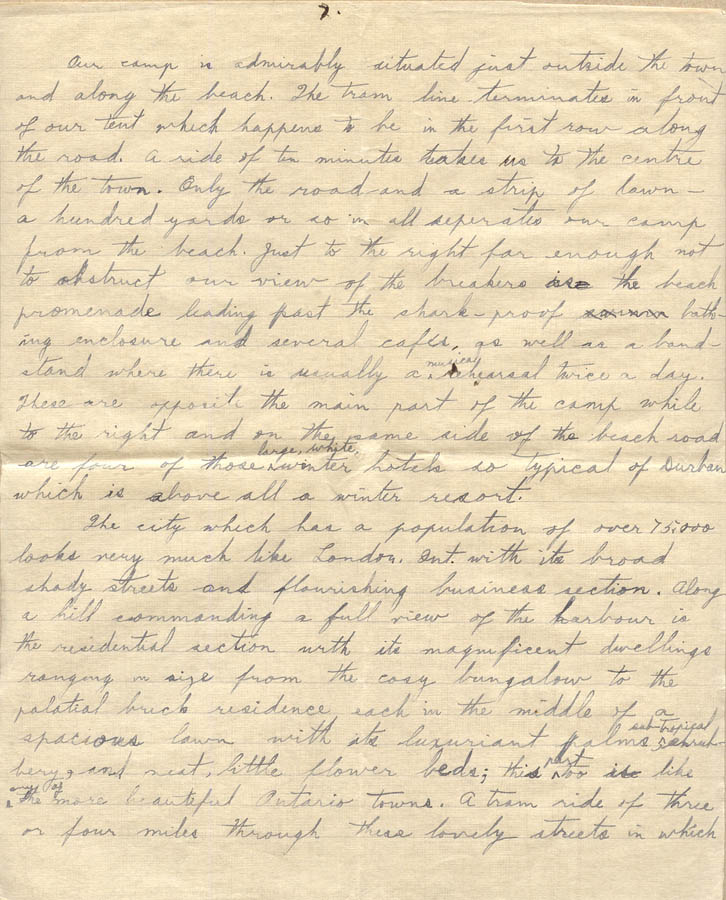 7.
Our camp is admirably situated just outside the town
and along the beach. The tram line terminates in front
of our tent which happens to be in the first row along
the road. A ride of ten minutes takes us to the centre
of the town. Only the road and a strip of lawn –
a hundred yards or so in all seperates our camp
from the beach. Just to the right far enough not
to obstruct our view of the breakers is the beach
promenade leading past the shark-proof bath-
ing enclosure and several cafés, as well as a band-
stand where there is usually a musical rehearsal twice a day.
These are opposite the main part of the camp while
to the right and on the same side of the beach road
are four of those large, white, winter hotels so typical of Durban
which is above all a winter resort.
The city which has a population of over 75,000
looks very much like London. Ont. with its broad
shady streets and flourishing business section. Along
a hill commanding a full view of the harbour is
the residential section with its magnificent dwellings
ranging in size from the cosy bungalow to the
palatial brick residence each in the middle of a
spacious lawn with its luxuriant palms, sub-tropical shrub-
bery, and neat, little flower beds; this part too is like
any of the more beautiful Ontario towns. A tram ride of three
or four miles through these lovely streets in which